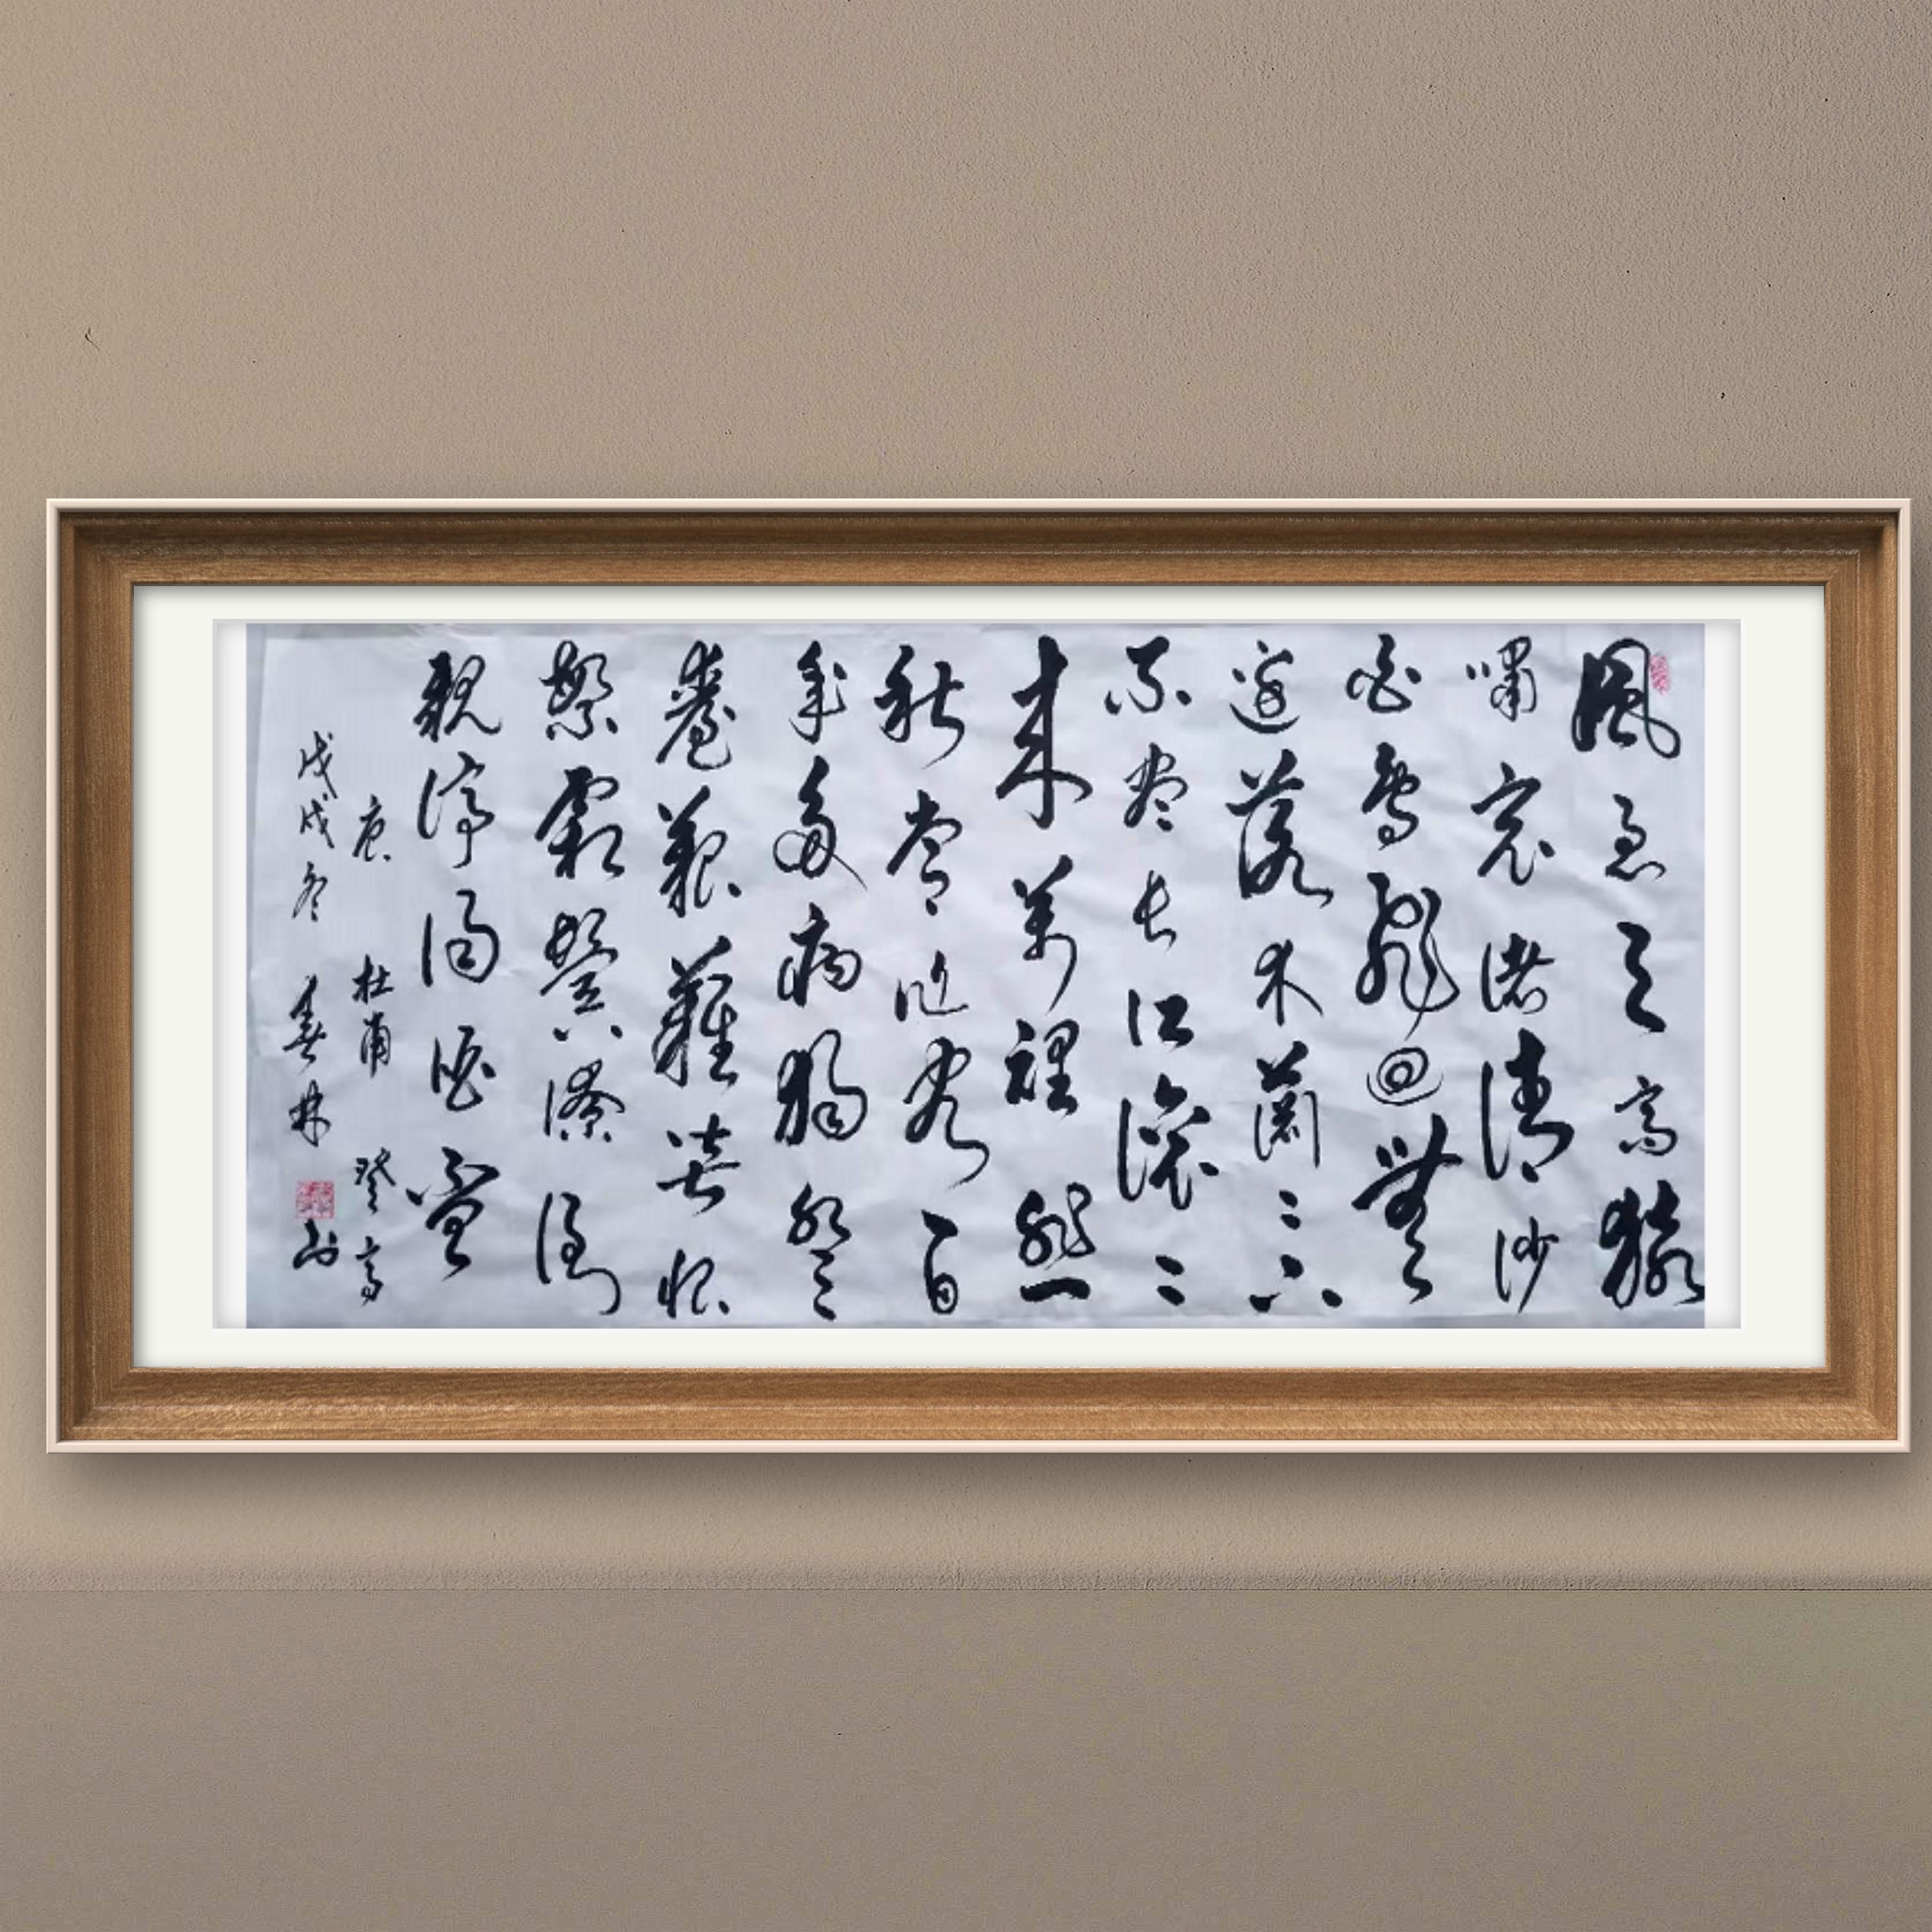 風急天高猿
嘯哀渚清沙
白鳥飛回無
邊落木蕭〻下
不尽長江滾〻
来萬裡悲
秋常作客百
年多病獨登
臺艱難苦恨
繁霜鬢潦倒
新停濁酒盃
唐 杜甫 登高
戊戌冬 春林 书